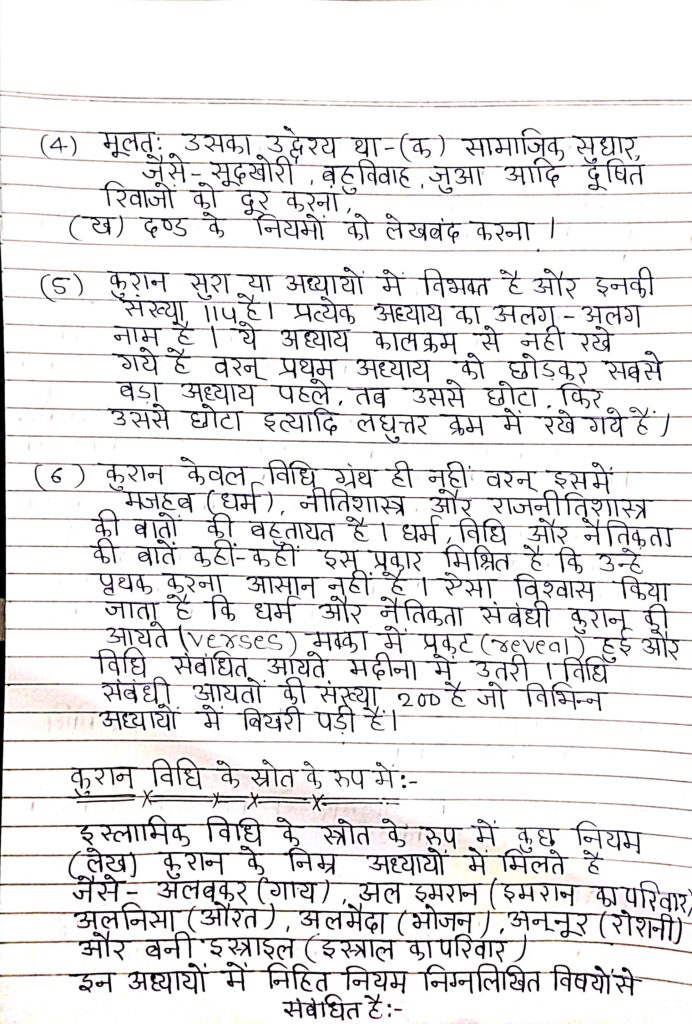 (4) मूलतः उसका उद्देश्य था-(क) सामाजिक सुधार,
जैसे- सूदखोरी, बहुविवाह, जुआ आदि दूषित
रिवाजों को दूर करना,
(ख) दण्ड के नियमों को लेखबंद करना।
(5) कुरान सुरा या अध्यायों में विभक्त है और इनकी
संख्या 114 है। प्रत्येक अध्याय का अलग-अलग
नाम है। ये अध्याय कालक्रम से नही रखे
गये है वरन् प्रथम अध्याय को छोड़कर सबसे
बड़ा अध्याय पहले, तब उससे छोटा, फिर
उससे छोटा इत्यादि लघुत्तर क्रम में रखे गये हैं।
(6) कुरान केवल विधि ग्रंथ ही नहीं वरन् इसमें
मजहब (धर्म), नीतिशास्त्र और राजनीतिशास्त्र
की बातों की बहुतायत है। धर्म, विधि और नैतिकता
की बातें कहीं-कहीं इस प्रकार मिश्रित है कि उन्हे
पृथक करना आसान नहीं है। ऐसा विश्वास किया
जाता है कि धर्म और नैतिकता संबंधी कुरान की
आयते (verses) मक्का में प्रकट (reveal) हुई और
विधि संबंधित आयते मदीना में उतरी। विधि
संबंधी आयतों की संख्या 200 है जो विभिन्न
अध्यायों में बिखरी पड़ी हैं।
कुरान विधि के स्रोत के रूप में:-
इस्लामिक विधि के स्त्रोत के रूप में कुछ नियम
(लेख) कुरान के निम्न अध्यायों में मिलते है
जैसे- अलबकर (गाय), अल इमरान (इमरान का परिवार)
अलनिसा (औरत), अलमैदा (भोजन), अन्नूर (रोशनी)
और बनी इस्त्राइल (इस्त्राल का परिवार)
इन अध्यायों में निहित नियम निम्नलिखित विषयों से
संबंधित है:-